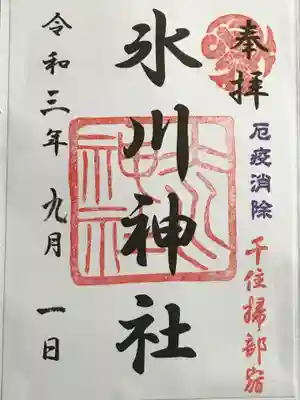 奉拝
厄疫消除
千住掃部宿
氷川神社
令和三年 九月 一日
氷川神社